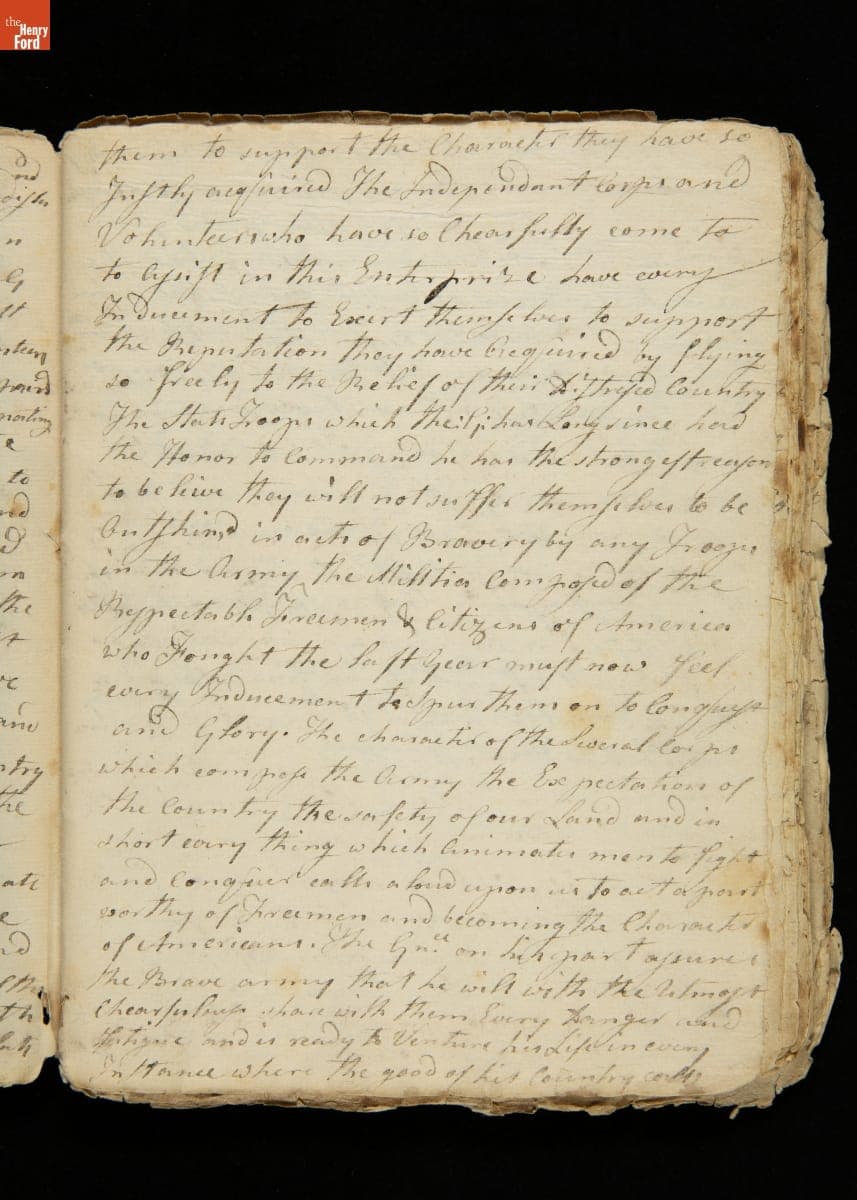 the Henry Ford
them to support the Character they have so
Justly acquired The Independant Corps and
Volunteers who have so Chearfully come to
to assist in this Enterprize have every
Inducement to Exert themselves to support
the Reputation they have acquired by flying
so freely to the Relief of their Distressed Country
The State Troops which the has Long since had
the Honor to Command he has the strongest reason
to beleive they will not suffer themselves to be
Outshin'd in acts of Bravery by any Troops
in the Army the Militia Composed of the
Respectable Freemen & Citizens of America
who Fought the last Year must now feel
every Inducement to Spur them on to Conquest
and Glory. The character of the Several Corps
which compose the Army the Expectation of
the Country the safety of our Land and in
short every thing which Animates men to fight
and conquer calls aloud upon us to act a part
worthy of Freemen and becoming the Character
of Americans. The Gnl on his part assures
the Brave army that he will with the Utmost
Chearfulness share with them Every Danger and
Fatigue and is ready to Venture his Life in every
Instance where the good of his Country calls